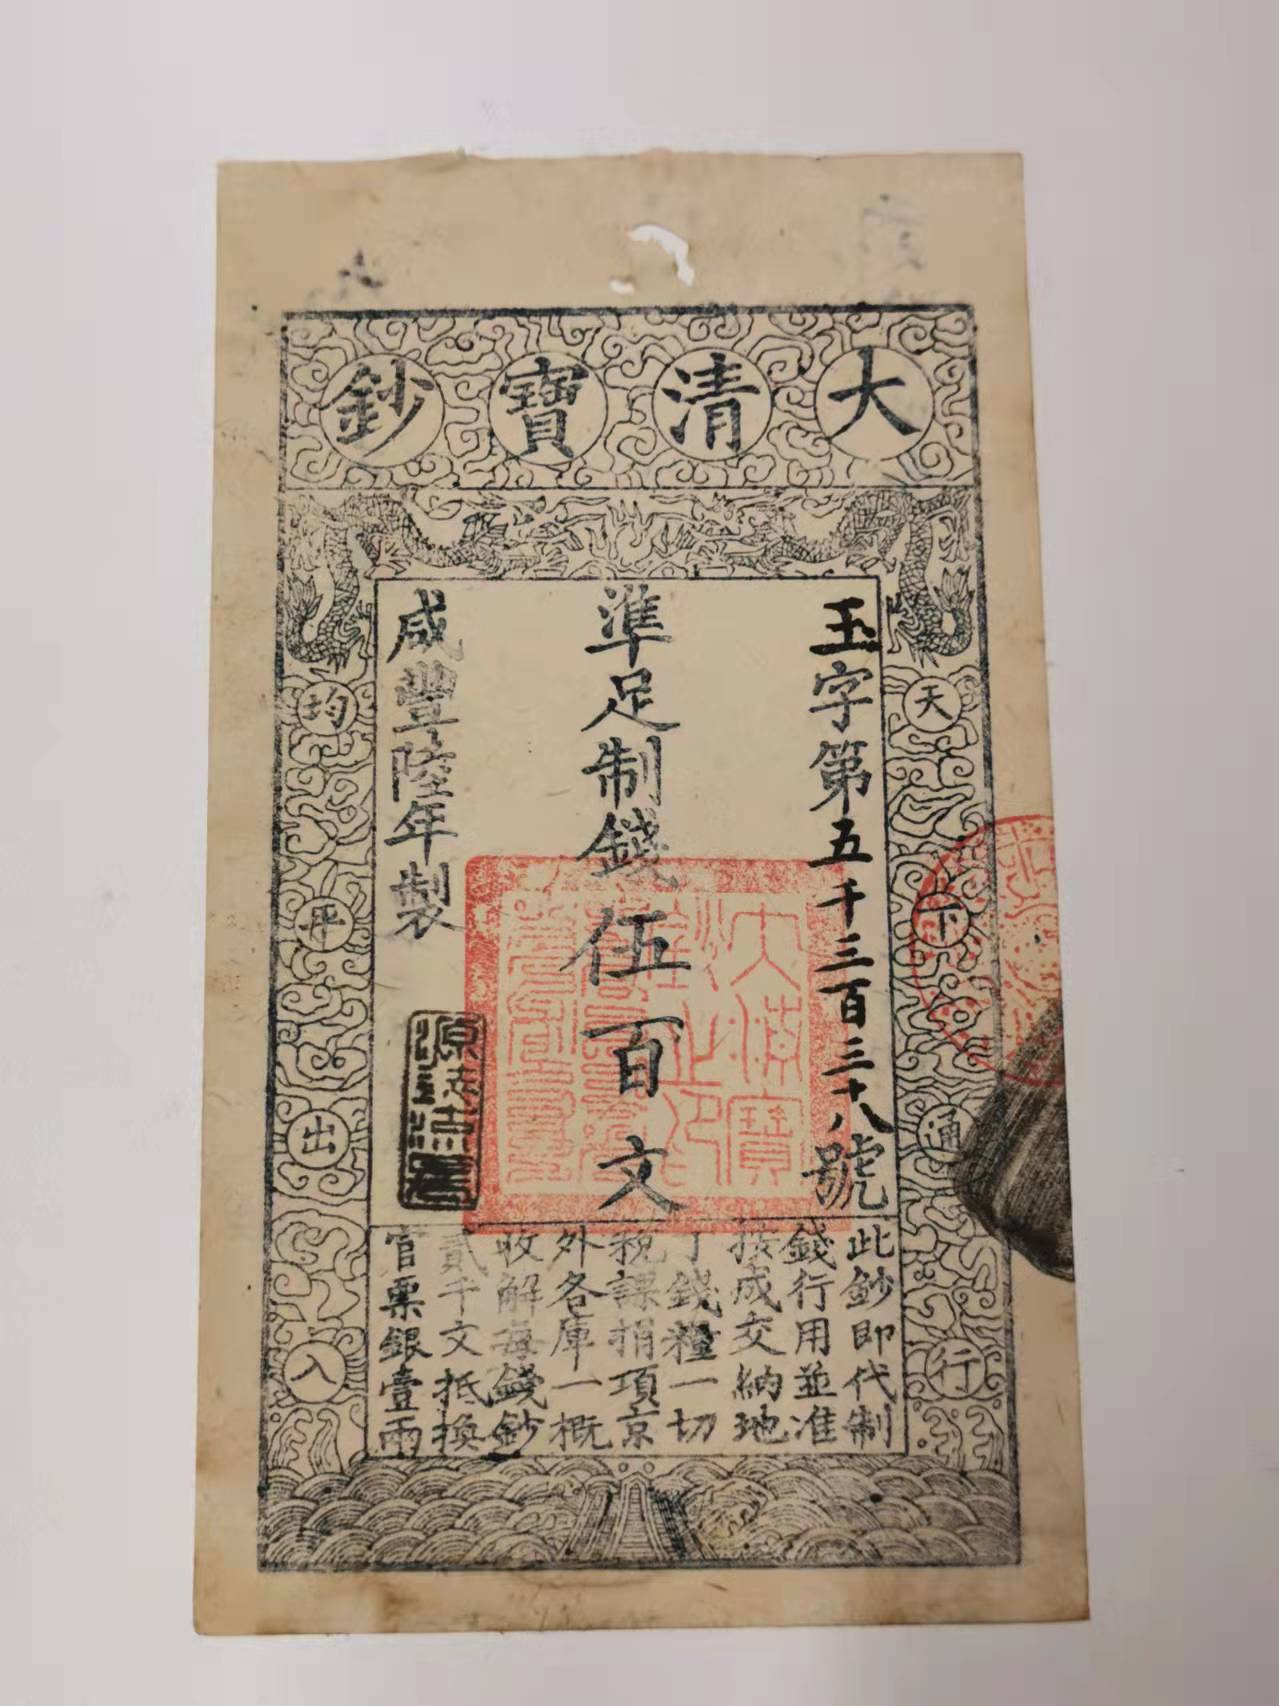 大清寶鈔
天下通行
均平出入
玉字第五千三百三十八號
準足制錢伍百文
咸豐陸年製
此鈔即代制
錢行用並准
按成交納地
丁錢糧一切
稅課捐項京
外各庫一概
收解每錢鈔
貳千文抵換
官票銀壹兩
大清寶鈔之印